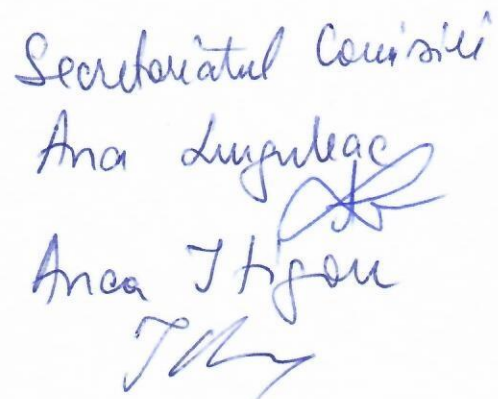 Secretariatul Comisiei
Ana Lunguleac
Anca Itigan